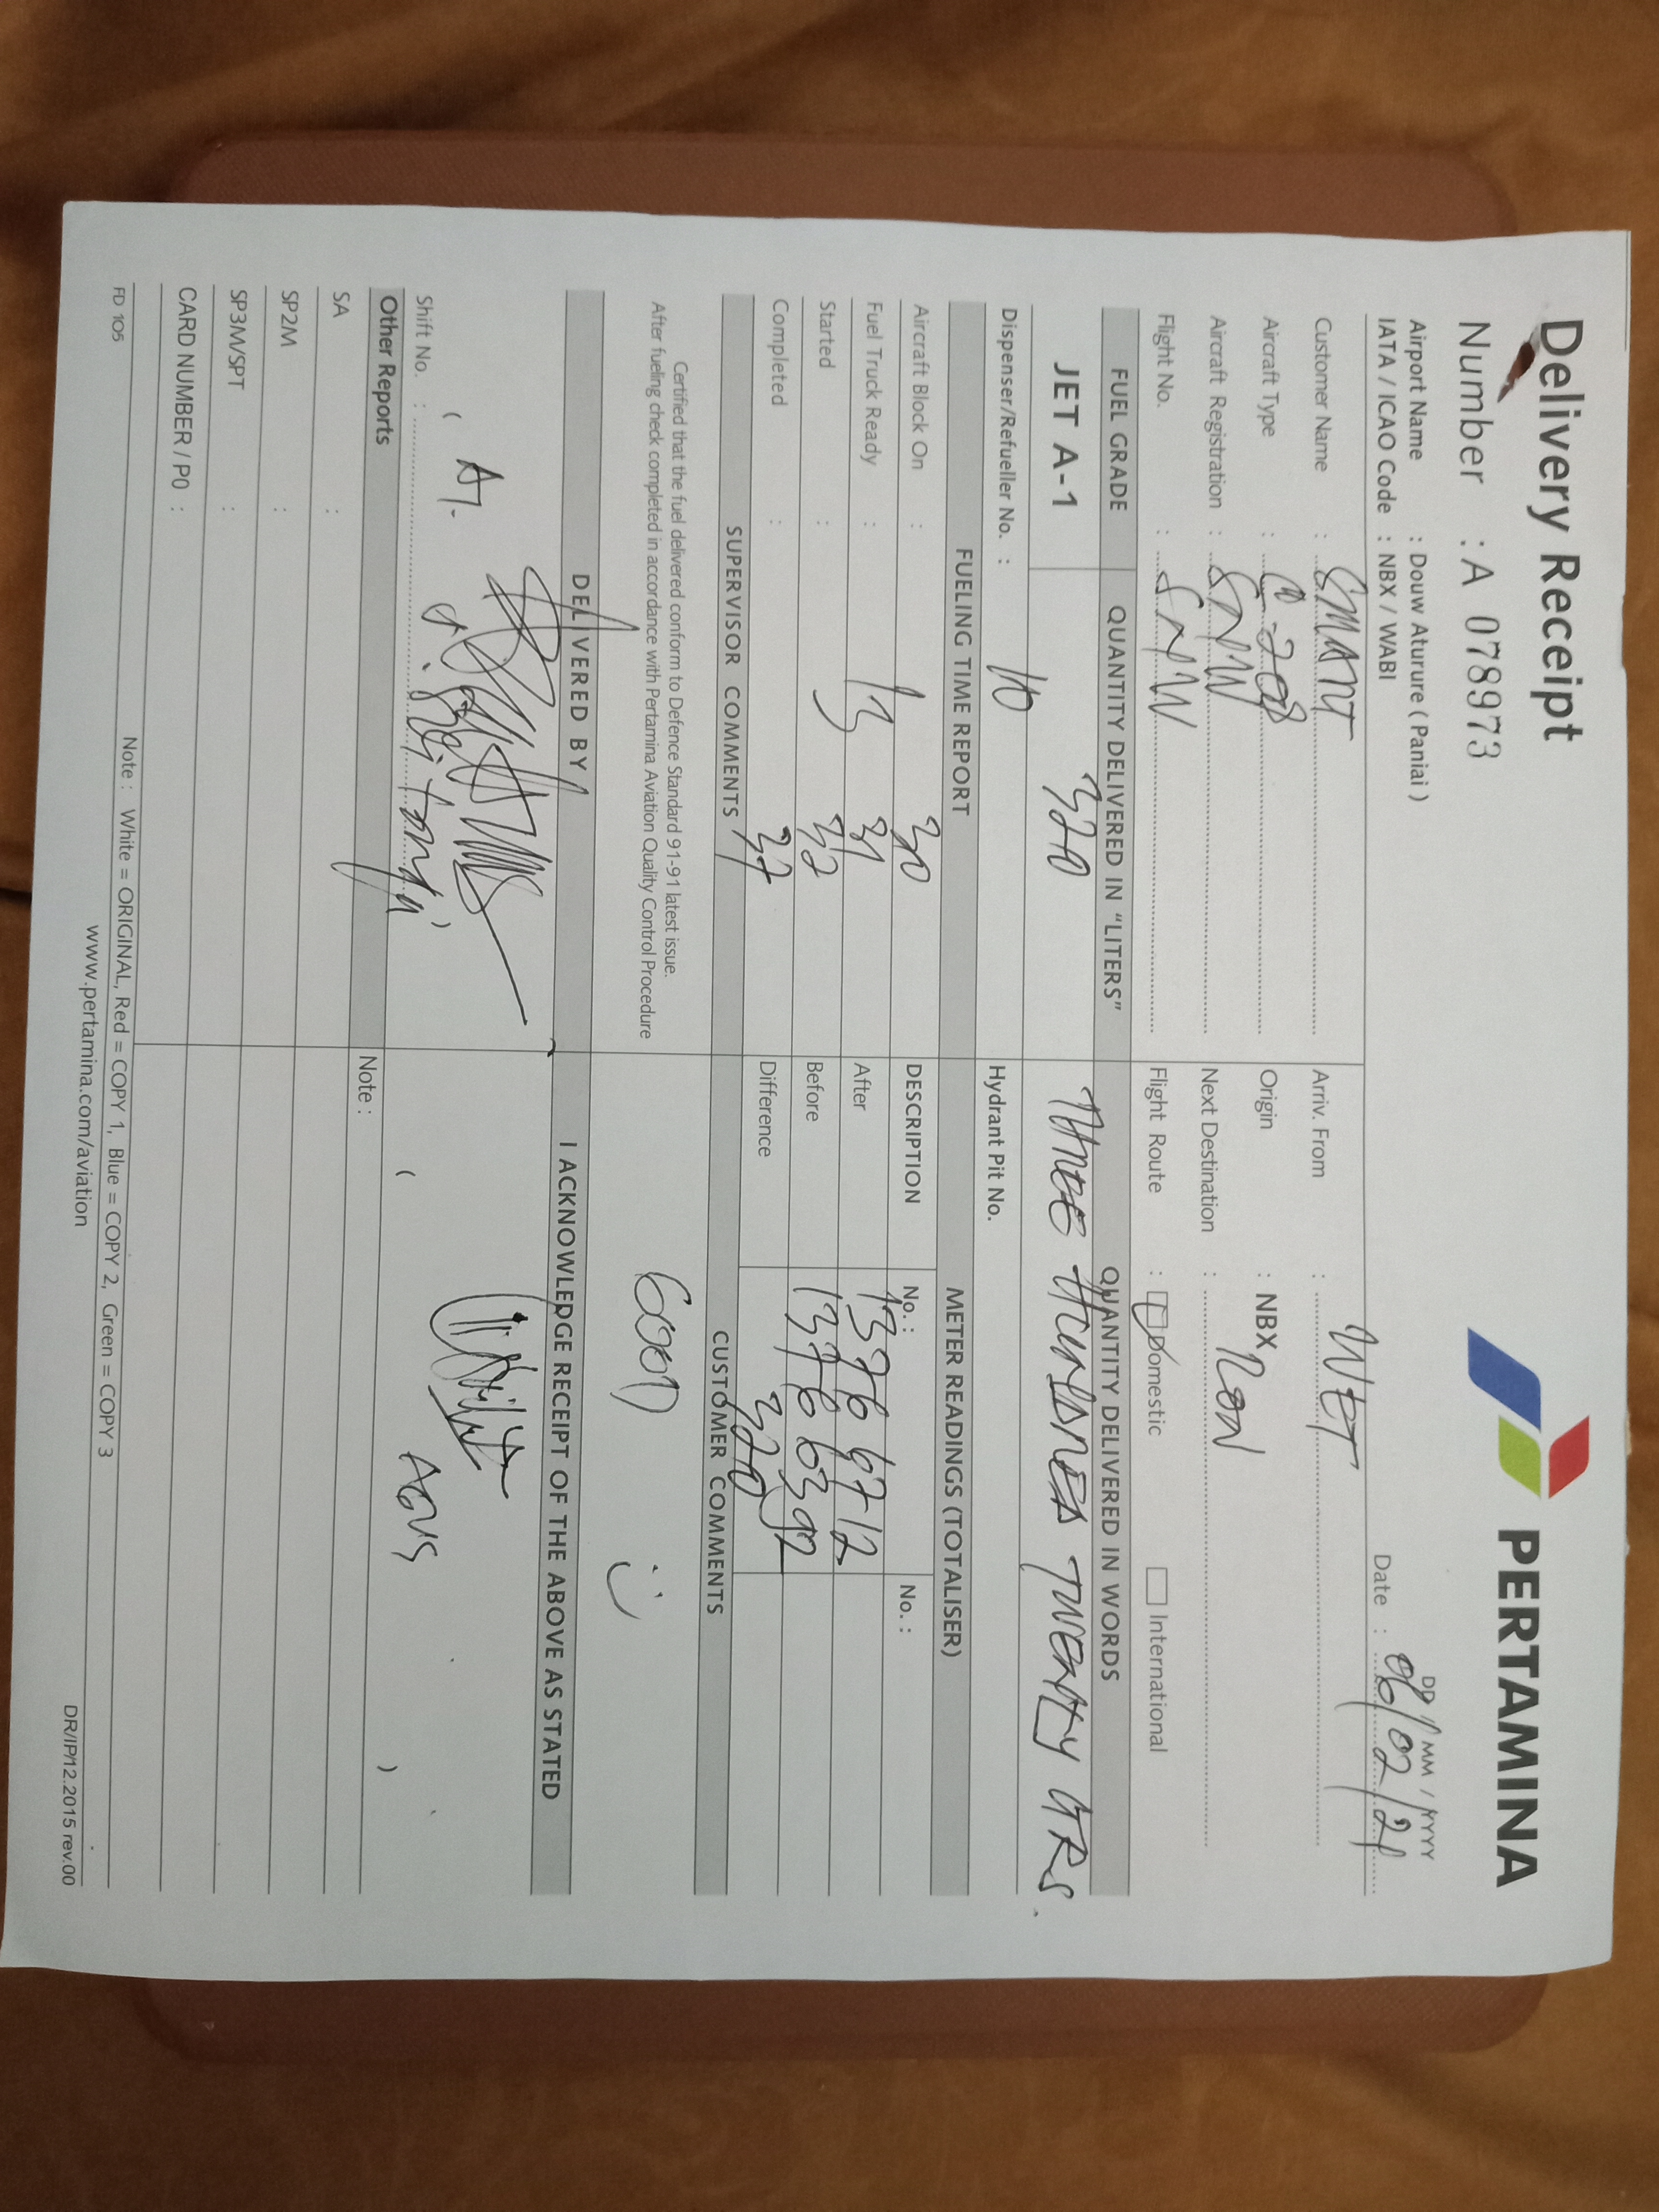 Delivery Receipt
PERTAMINA
Number : A 078973
DD / MM / YYYY
Airport Name : Douw Aturure ( Paniai )
IATA / ICAO Code : NBX / WABI
Date : 06/02/21
Customer Name : SMART
Arriv. From : WET
Aircraft Type : C-208
Origin : NBX
Aircraft Registration : SNW
Next Destination : RON
Flight No. : SNW
Flight Route : Domestic International
FUEL GRADE QUANTITY DELIVERED IN "LITERS" QUANTITY DELIVERED IN WORDS
JET A-1 320 THREE HUNDRED TWENTY LTRS.
Dispenser/Refueller No. : 10 Hydrant Pit No.
FUELING TIME REPORT METER READINGS (TOTALISER)
Aircraft Block On : 30 DESCRIPTION No. : No. :
Fuel Truck Ready : 13 31 After 13766712
Started : 32 Before 13766392
Completed : 37 Difference 320
SUPERVISOR COMMENTS CUSTOMER COMMENTS
Certified that the fuel delivered conform to Defence Standard 91-91 latest issue.
After fueling check completed in accordance with Pertamina Aviation Quality Control Procedure
GOOD
DELIVERED BY I ACKNOWLEDGE RECEIPT OF THE ABOVE AS STATED
( )
Shift No. :
( AGUS )
Other Reports Note :
SA :
SP2M :
SP3M/SPT :
CARD NUMBER / PO :
Note : White = ORIGINAL, Red = COPY 1, Blue = COPY 2, Green = COPY 3
FD 105 www.pertamina.com/aviation DR/IP/12.2015 rev.00